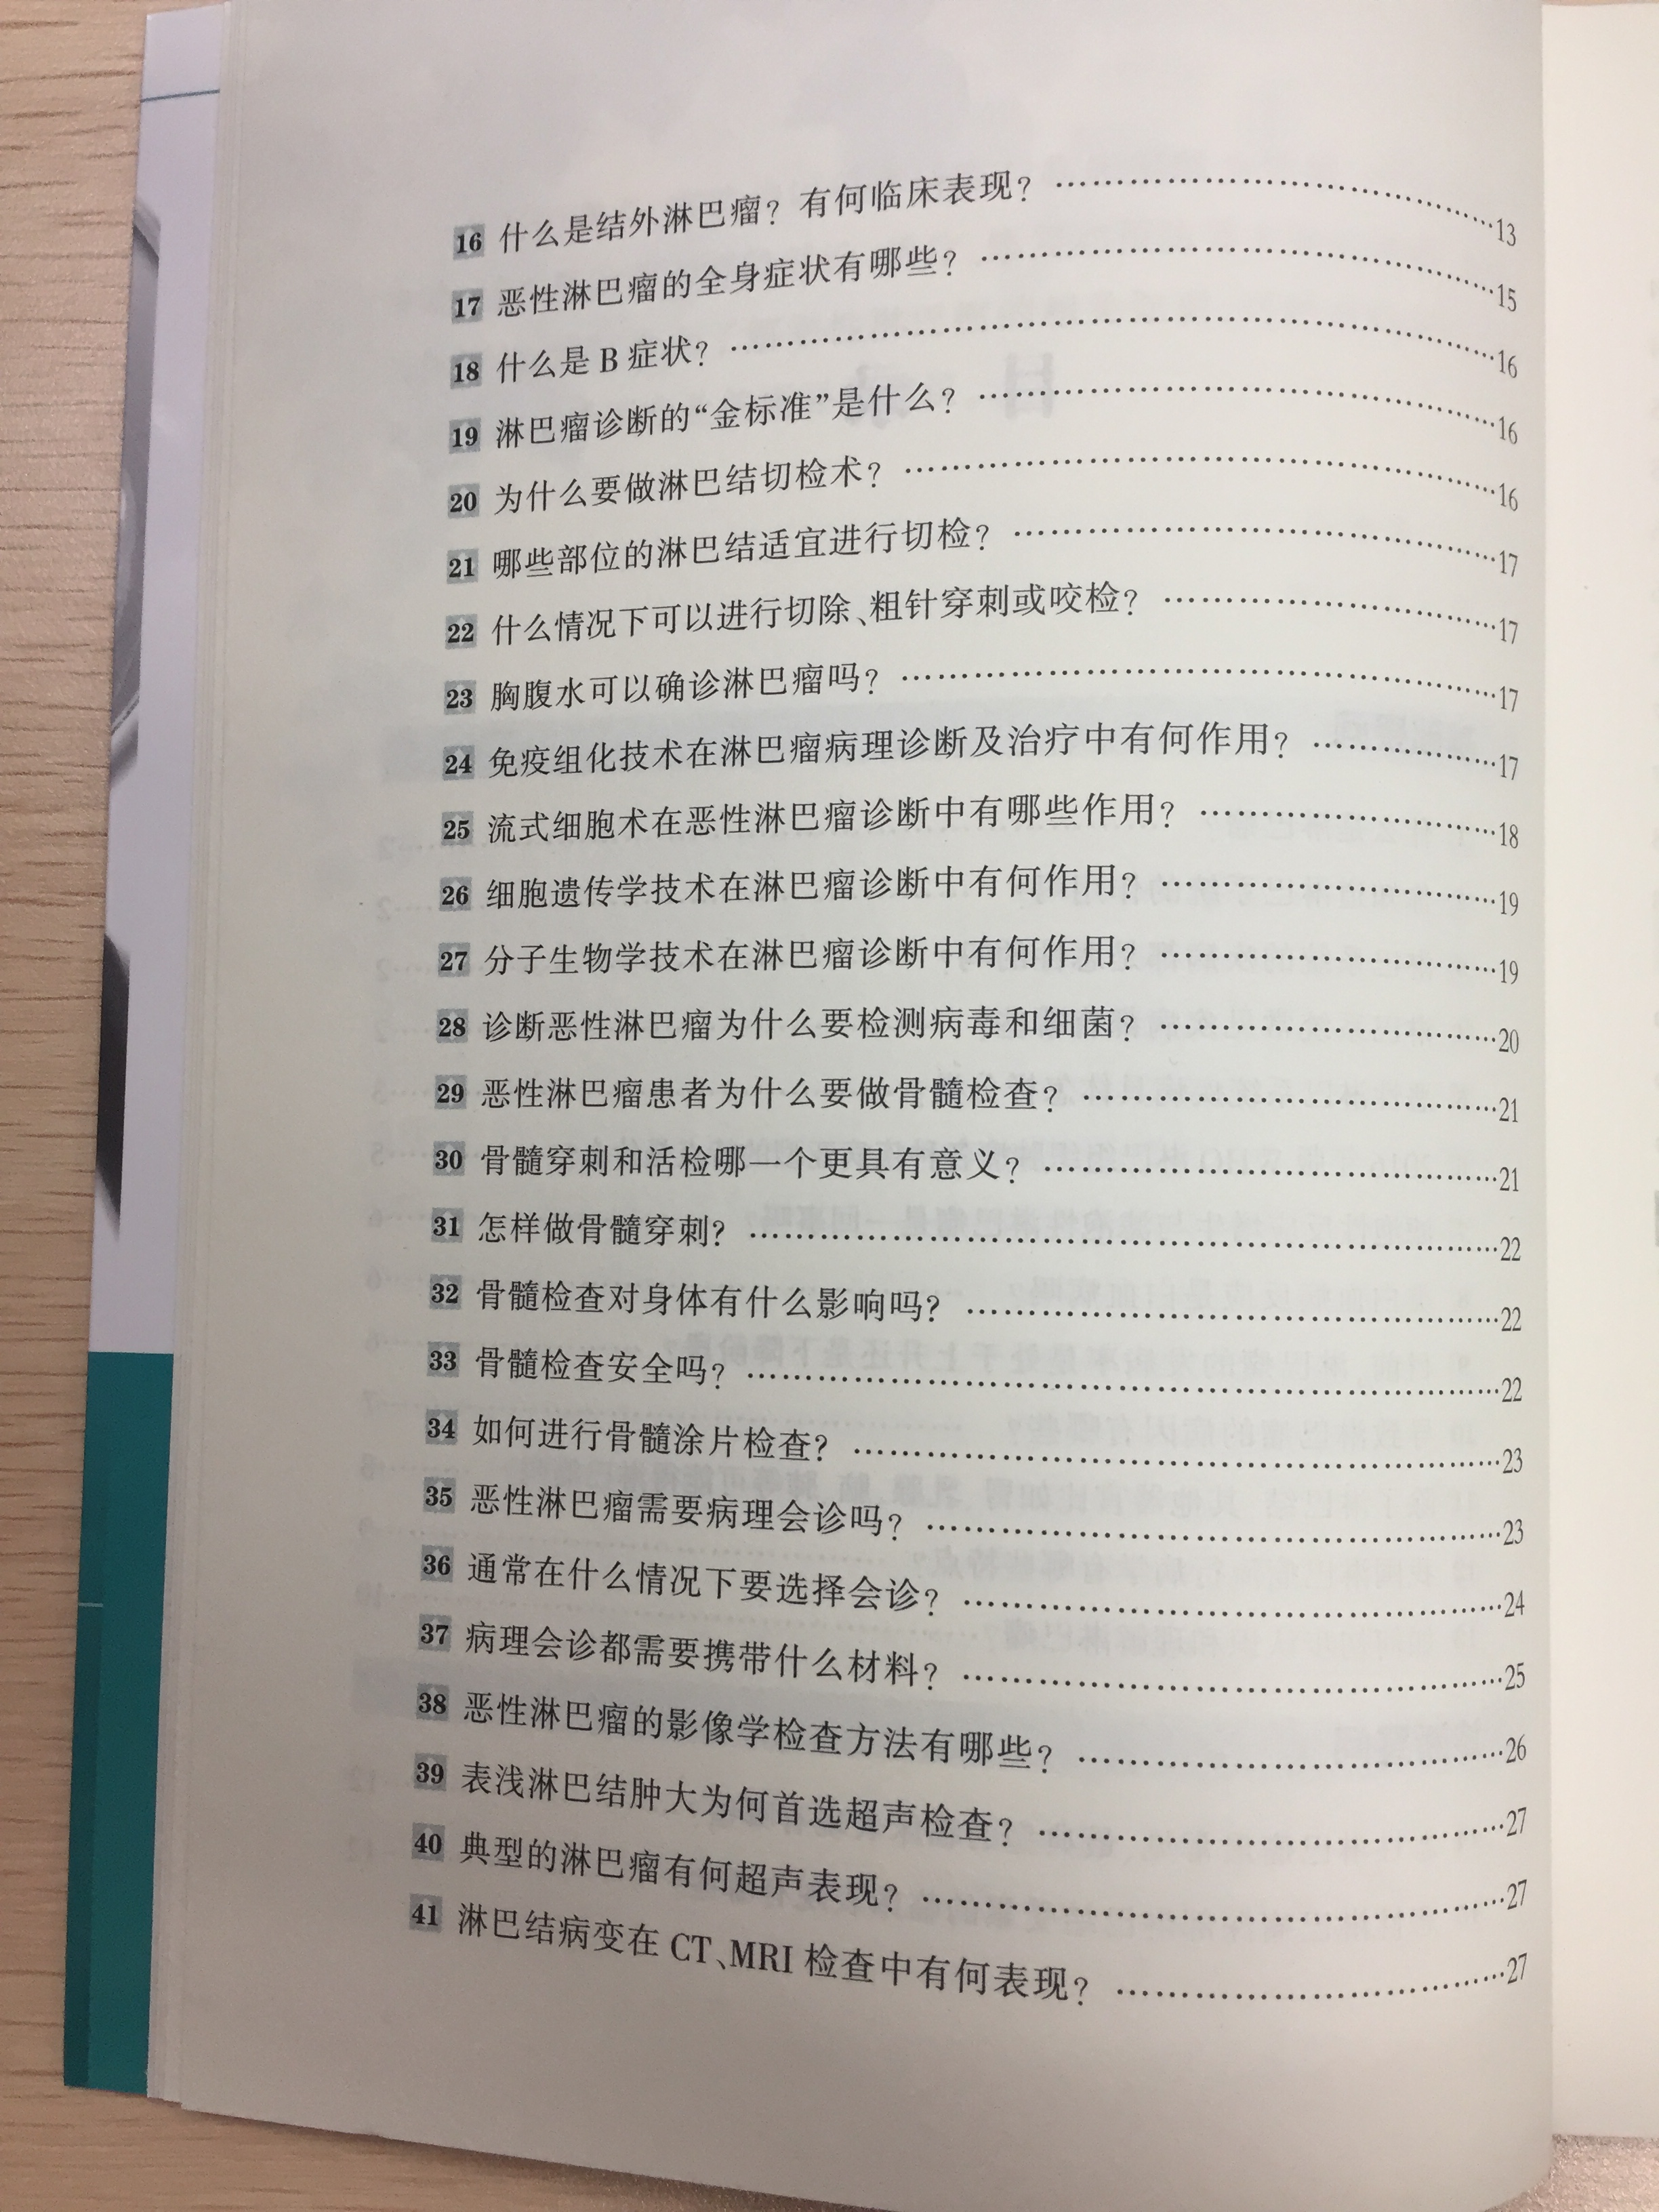 16 什么是结外淋巴瘤？有何临床表现？ ……13
17 恶性淋巴瘤的全身症状有哪些？ ……15
18 什么是 B 症状？ ……16
19 淋巴瘤诊断的“金标准”是什么？ ……16
20 为什么要做淋巴结切检术？ ……16
21 哪些部位的淋巴结适宜进行切检？ ……17
22 什么情况下可以进行切除、粗针穿刺或咬检？ ……17
23 胸腹水可以确诊淋巴瘤吗？ ……17
24 免疫组化技术在淋巴瘤病理诊断及治疗中有何作用？ ……17
25 流式细胞术在恶性淋巴瘤诊断中有哪些作用？ ……18
26 细胞遗传学技术在淋巴瘤诊断中有何作用？ ……19
27 分子生物学技术在淋巴瘤诊断中有何作用？ ……19
28 诊断恶性淋巴瘤为什么要检测病毒和细菌？ ……20
29 恶性淋巴瘤患者为什么要做骨髓检查？ ……21
30 骨髓穿刺和活检哪一个更具有意义？ ……21
31 怎样做骨髓穿刺？ ……22
32 骨髓检查对身体有什么影响吗？ ……22
33 骨髓检查安全吗？ ……22
34 如何进行骨髓涂片检查？ ……23
35 恶性淋巴瘤需要病理会诊吗？ ……23
36 通常在什么情况下要选择会诊？ ……24
37 病理会诊都需要携带什么材料？ ……25
38 恶性淋巴瘤的影像学检查方法有哪些？ ……26
39 表浅淋巴结肿大为何首选超声检查？ ……27
40 典型的淋巴瘤有何超声表现？ ……27
41 淋巴结病变在 CT、MRI 检查中有何表现？ ……27